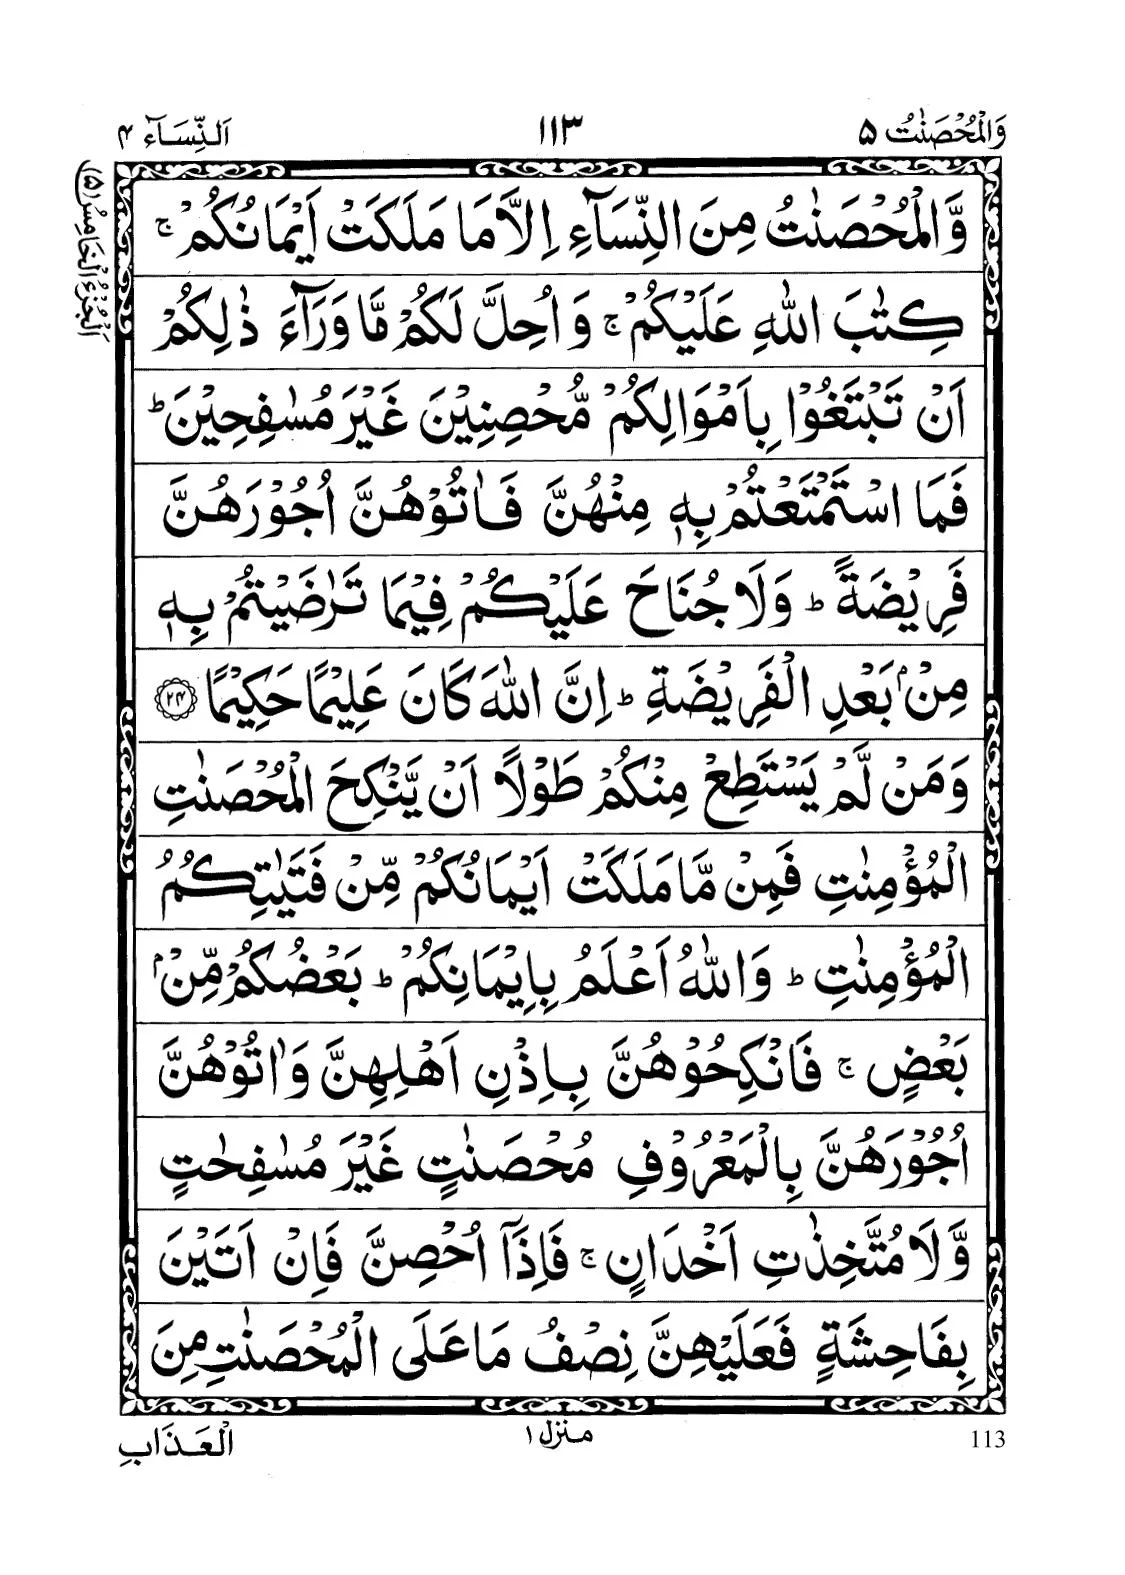 وَالْمُحْصَنٰتُ ۵ ۱۱۳ اَلنِّسَآء ۴
اَلْجُزْءُ الْخَامِسُ (۵)
وَّالْمُحْصَنٰتُ مِنَ النِّسَآءِ اِلَّا مَا مَلَكَتْ اَيْمَانُكُمْ ۚ
كِتٰبَ اللّٰهِ عَلَيْكُمْ ۚ وَاُحِلَّ لَكُمْ مَّا وَرَآءَ ذٰلِكُمْ
اَنْ تَبْتَغُوْا بِاَمْوَالِكُمْ مُّحْصِنِيْنَ غَيْرَ مُسٰفِحِيْنَ ؕ
فَمَا اسْتَمْتَعْتُمْ بِهٖ مِنْهُنَّ فَاٰتُوْهُنَّ اُجُوْرَهُنَّ
فَرِيْضَةً ؕ وَلَا جُنَاحَ عَلَيْكُمْ فِيْمَا تَرٰضَيْتُمْ بِهٖ
مِنْۢ بَعْدِ الْفَرِيْضَةِ ؕ اِنَّ اللّٰهَ كَانَ عَلِيْمًا حَكِيْمًا ﴿۲۴﴾
وَمَنْ لَّمْ يَسْتَطِعْ مِنْكُمْ طَوْلًا اَنْ يَّنْكِحَ الْمُحْصَنٰتِ
الْمُؤْمِنٰتِ فَمِنْ مَّا مَلَكَتْ اَيْمَانُكُمْ مِّنْ فَتَيٰتِكُمُ
الْمُؤْمِنٰتِ ؕ وَاللّٰهُ اَعْلَمُ بِاِيْمَانِكُمْ ؕ بَعْضُكُمْ مِّنْۢ
بَعْضٍ ۚ فَانْكِحُوْهُنَّ بِاِذْنِ اَهْلِهِنَّ وَاٰتُوْهُنَّ
اُجُوْرَهُنَّ بِالْمَعْرُوْفِ مُحْصَنٰتٍ غَيْرَ مُسٰفِحٰتٍ
وَّلَا مُتَّخِذٰتِ اَخْدَانٍ ۚ فَاِذَاۤ اُحْصِنَّ فَاِنْ اَتَيْنَ
بِفَاحِشَةٍ فَعَلَيْهِنَّ نِصْفُ مَا عَلَى الْمُحْصَنٰتِ مِنَ
113 منزل ۱ الْعَذَابِ